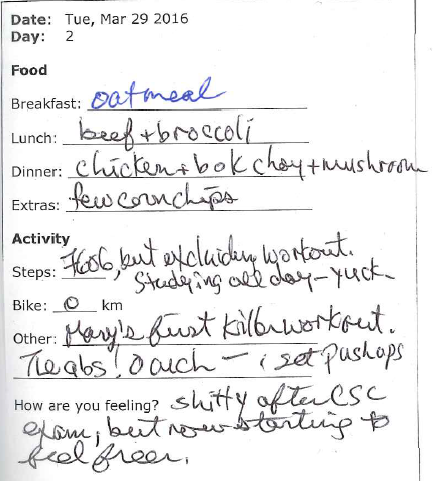 Date: Tue, Mar 29 2016
Day: 2
Food
Breakfast: oatmeal
Lunch: beef + broccoli
Dinner: chicken + bok choy + mushroom
Extras: few corn chips
Activity
Steps: 7606, but excluding workout.
Studying all day - yuck
Bike: 0 km
Other: Mary's first killer workout.
The abs! Ouch - 1 set pushups
How are you feeling? shitty after CSC
exam, but now starting to
feel freer.